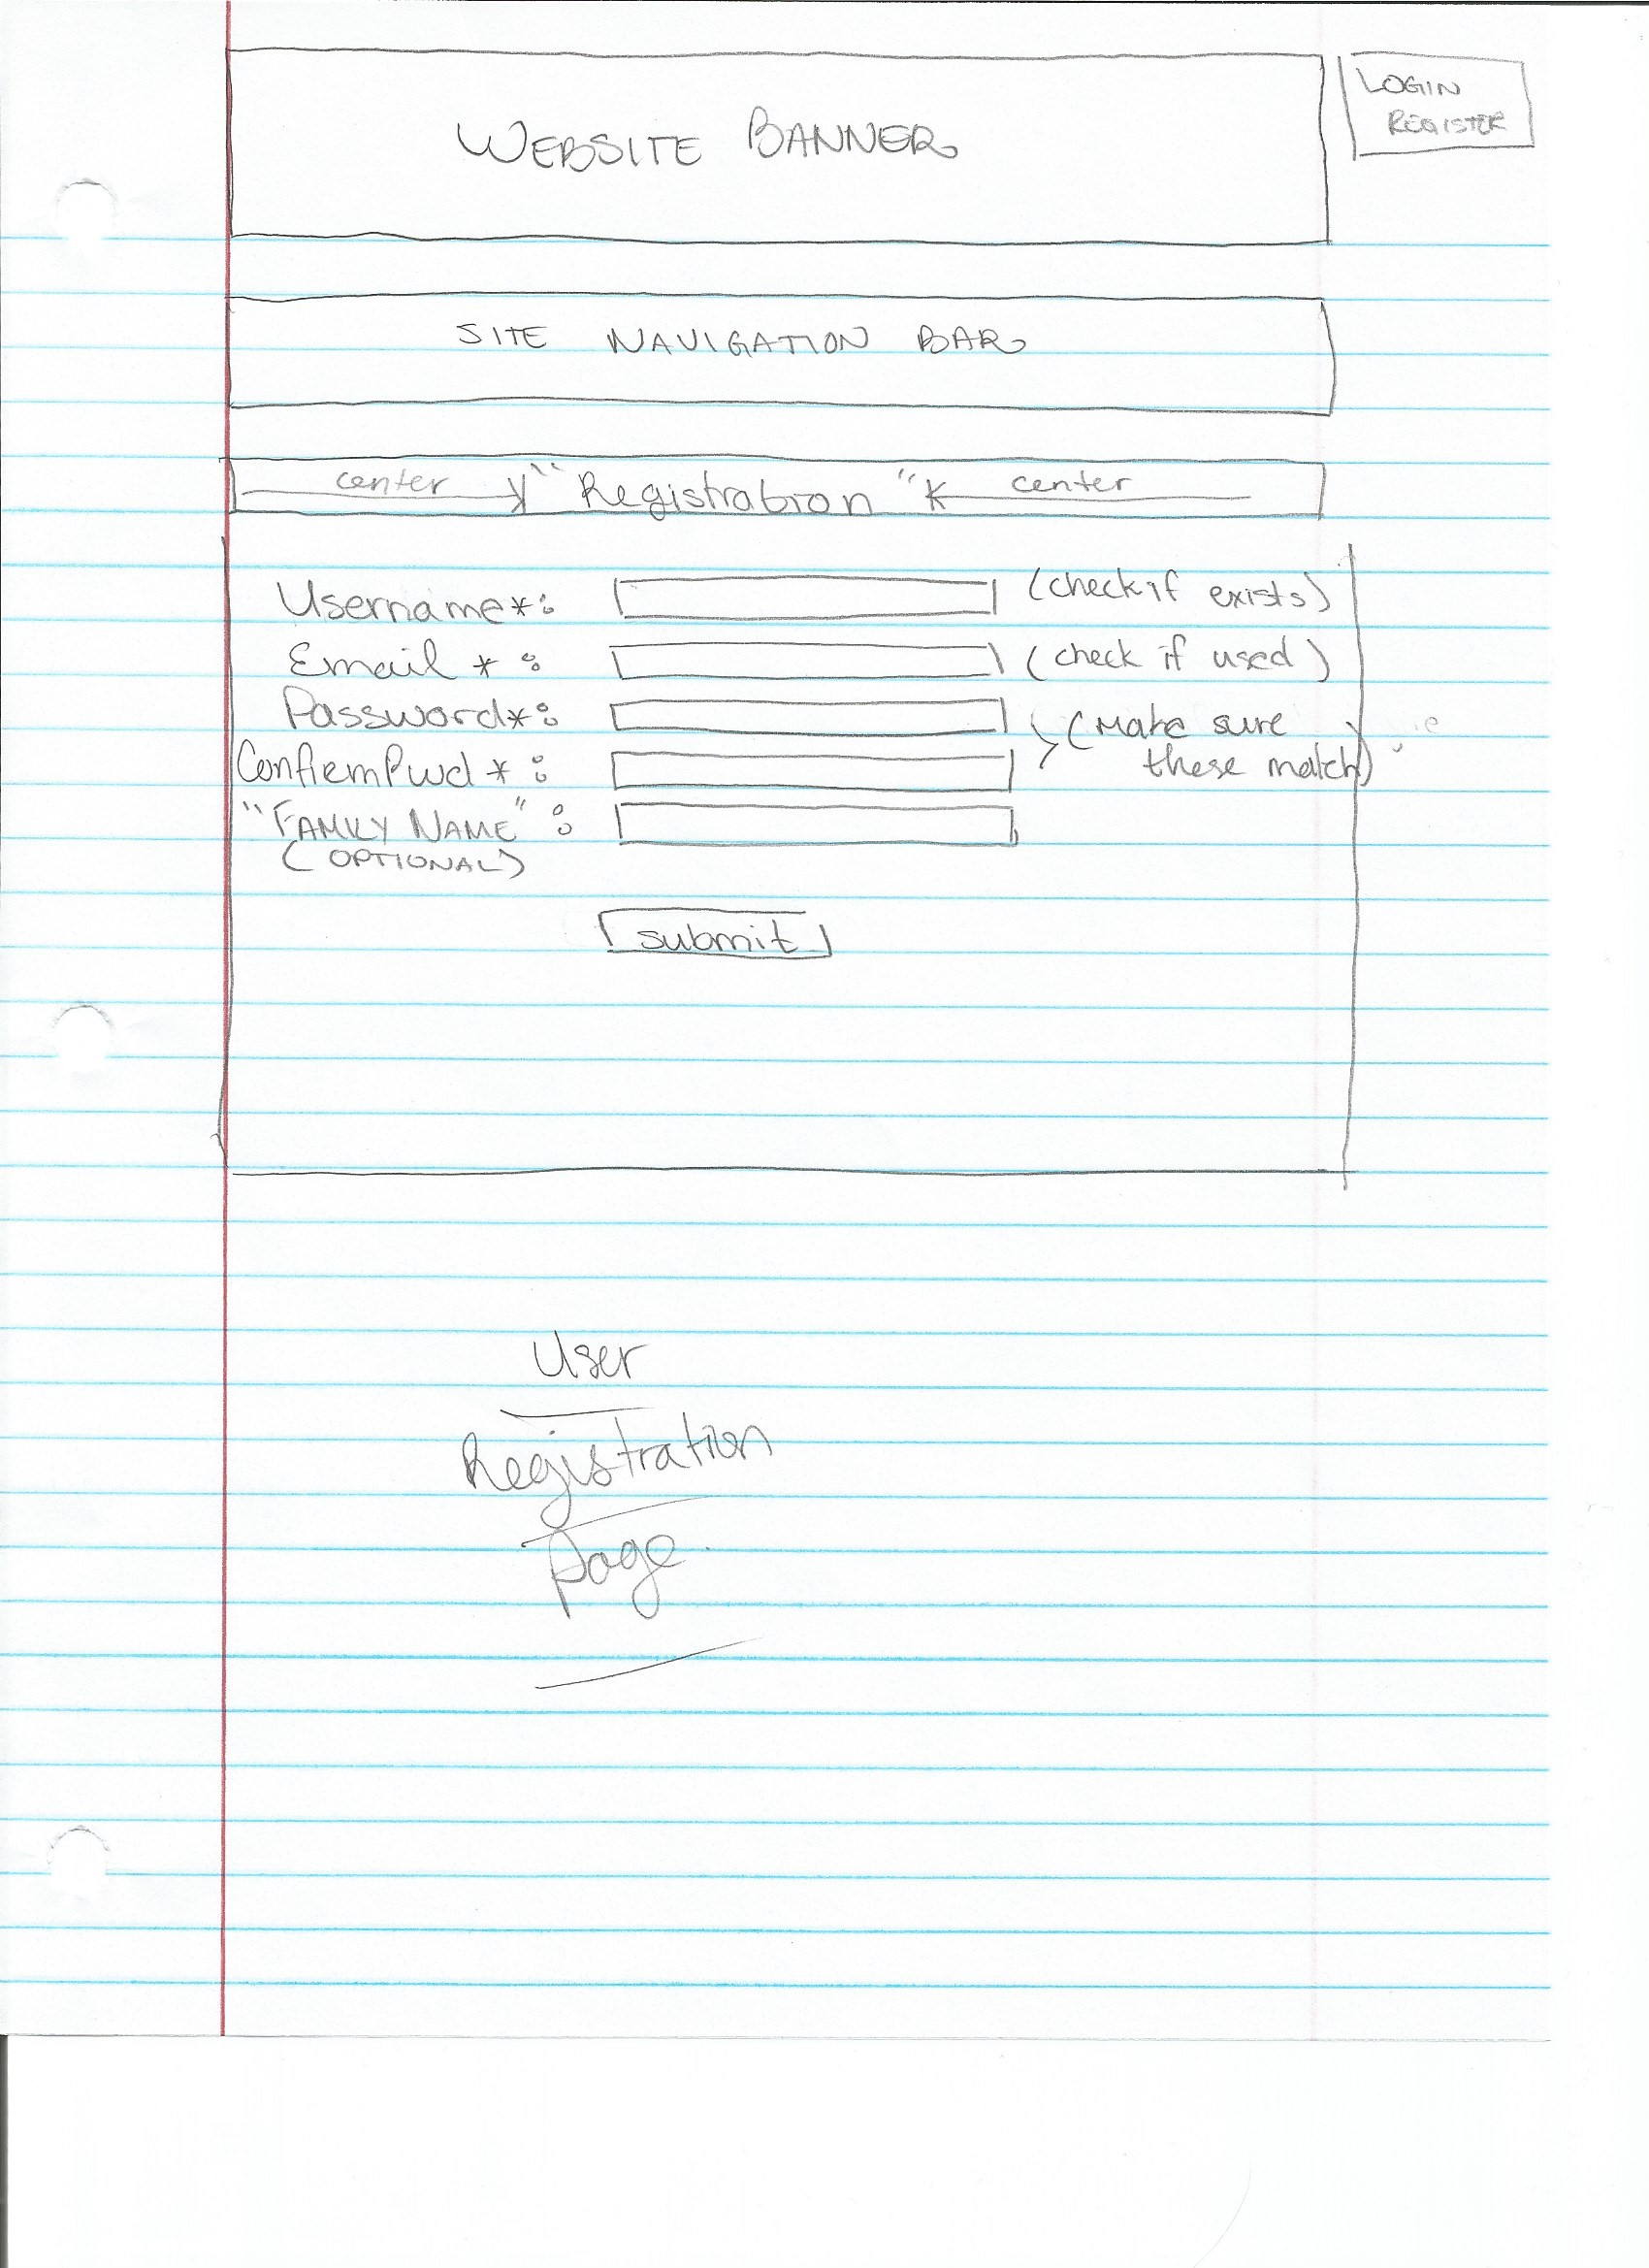 WEBSITE BANNER
LOGIN
REGISTER
SITE NAVIGATION BAR
center "Registration" center
Username*: (check if exists)
Email *: (check if used)
Password*: (Make sure
these match)
ConfirmPwd *:
"FAMILY NAME":
(OPTIONAL)
submit
User
Registration
page.